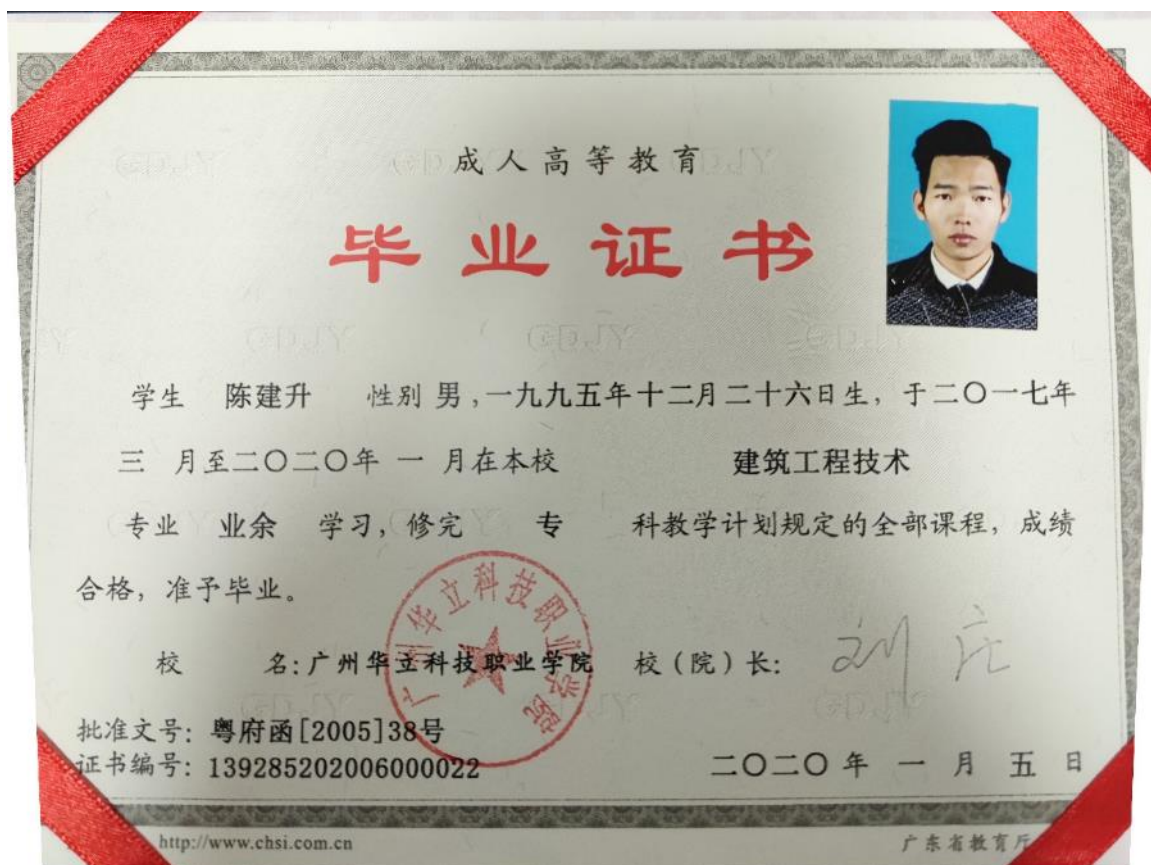 成人高等教育
毕业证书
学生 陈建升 性别 男，一九九五年十二月二十六日生，于二〇一七年
三 月至二〇二〇年 一 月在本校 建筑工程技术
专业 业余 学习，修完 专 科教学计划规定的全部课程，成绩
合格，准予毕业。
校 名：广州华立科技职业学院 校（院）长：
广州华立科技职业学院
批准文号：粤府函[2005]38号
证书编号：139285202006000022 二〇二〇年 一 月 五 日
http://www.chsi.com.cn 广东省教育厅